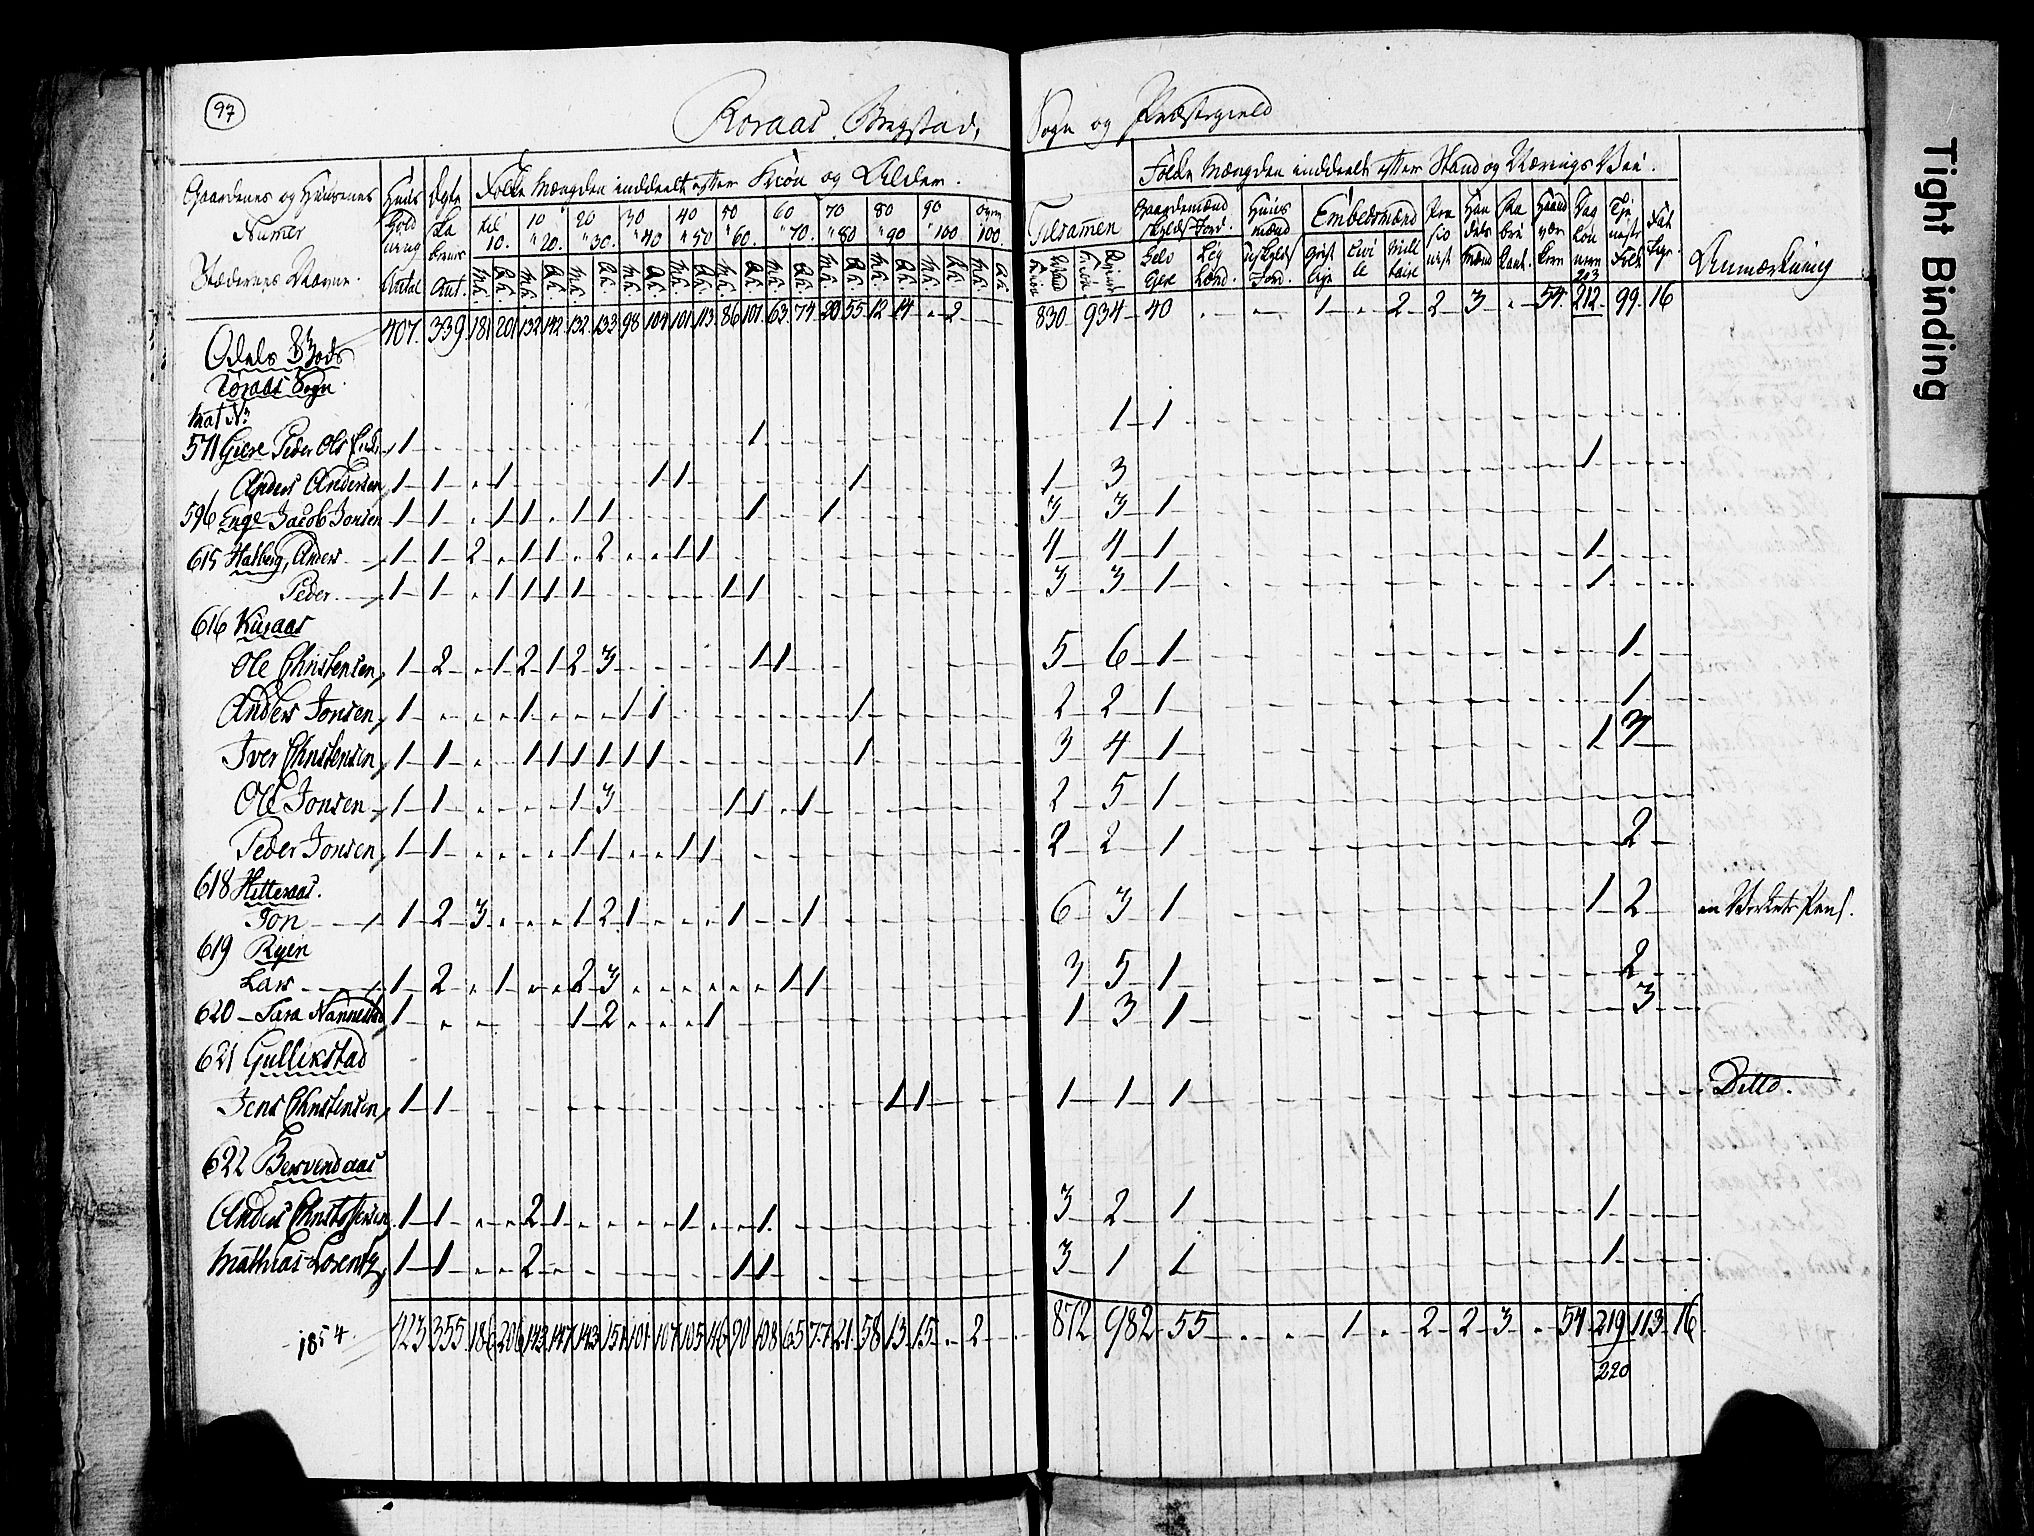 97
Roraas Bergstad, Sogn og Præstegield
Tight Binding
Gaardenes og Husenes Numer
Folke Mængden inddeelt efter Kiøn og Alder.
Folke Mængden inddeelt efter Stand og Nærings Vei.
til 10. 10 " 20. 20 " 30. 30 " 40 40 " 50 50 " 60. 60 " 70. 70 " 80 80 " 90 90 " 100 over 100.
Tilsamen
Embedsmænd
Anmærkning
407. 339. 181 201 132 142 132 133 98 104 101 113 86 101 63 74 20 55 12 14 " 2 830 934 40 1 " 2 2 3 " 54. 212. 99. 16
Odals Gods
Røraas Sogn.
Mat N:
571 Giere Peder Ols Enke 1 1 1 1
Anders Andersen 1 1 1 1 1 1 1 3 1
596 Enge Jacob Jonsen 1 1 1 1 1 1 1 1 3 3 1
615 Halberg, Anders 1 1 2 1 1 2 1 1 4 4 1 1
Peder 1 1 1 1 1 1 1 1 3 3 1 1
616 Kuraas
Ole Christensen 1 2 1 2 1 2 3 1 1 5 6 1 1
Anders Jonsen 1 1 1 1 1 2 2 1 1
Iver Christensen 1 1 1 1 1 1 1 1 1 3 4 1 1 3
Ole Jonsen 1 1 1 3 1 1 1 2 5 1
Peder Jonsen 1 1 1 1 1 1 2 2 1 2
618 Hitteraas.
Jon 1 2 3 1 2 1 1 1 6 3 1 1 2 en Verkets Pens.
619 Ryen
Lars 1 2 1 2 3 1 1 3 5 1 2
620 Sara Nannestad 1 1 2 1 1 3 1 3
621 Gullikstad
Jens Christensen 1 1 1 1 1 1 1 Ditto.
622 Bersvendaas
Anders Christophersen 1 1 2 1 1 1 3 2 1 1
Mathias Lorentz 1 1 2 1 1 3 1 1 1
1854. 423 355 186 206 143 147 143 151 101 107 105 116 90 108 65 77 21 58 13 15 " 2 872 982 55 1 " 2 2 3 " 54 219 113 16
220